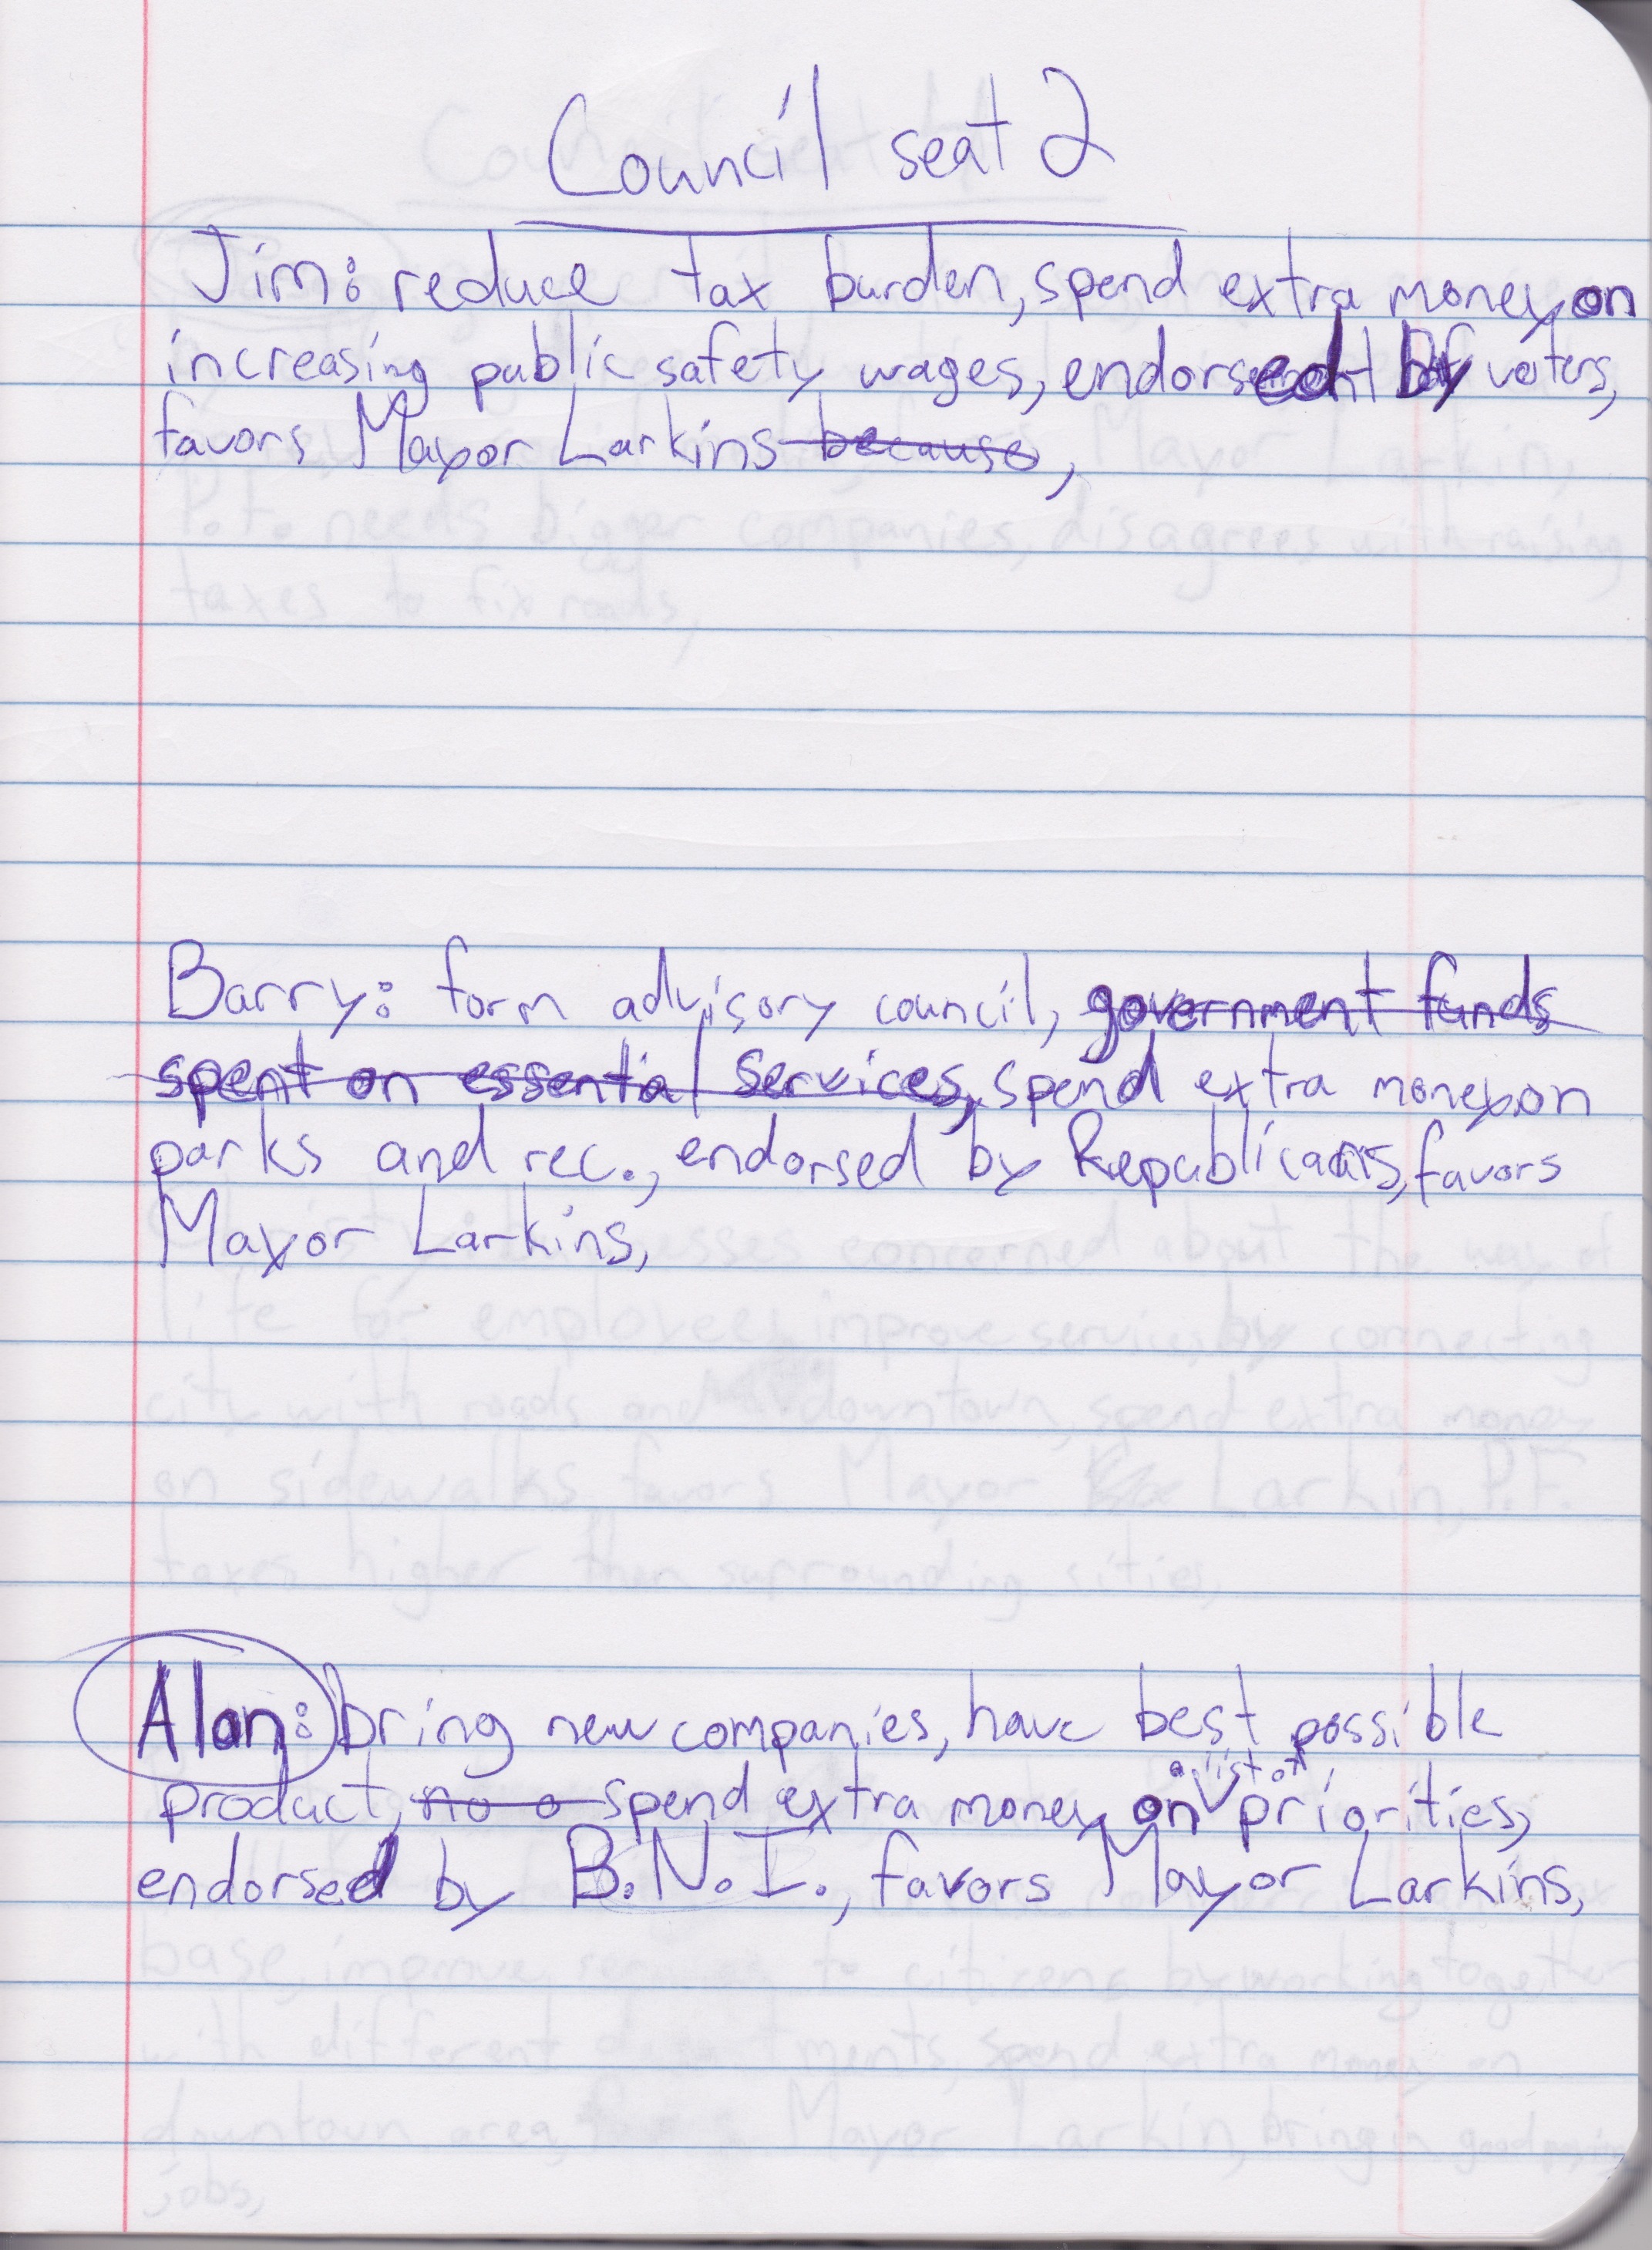 Council seat 2
Jim: reduce tax burden, spend extra money on
increasing public safety wages, endorsed by voters,
favors Mayor Larkins because,
Barry: form advisory council, government funds
spent on essential services, spend extra money on
parks and rec., endorsed by Republicans, favors
Mayor Larkins,
Alan: bring new companies, have best possible
a list of
product, no o spend extra money on priorities,
endorsed by B.N.I., favors Mayor Larkins,